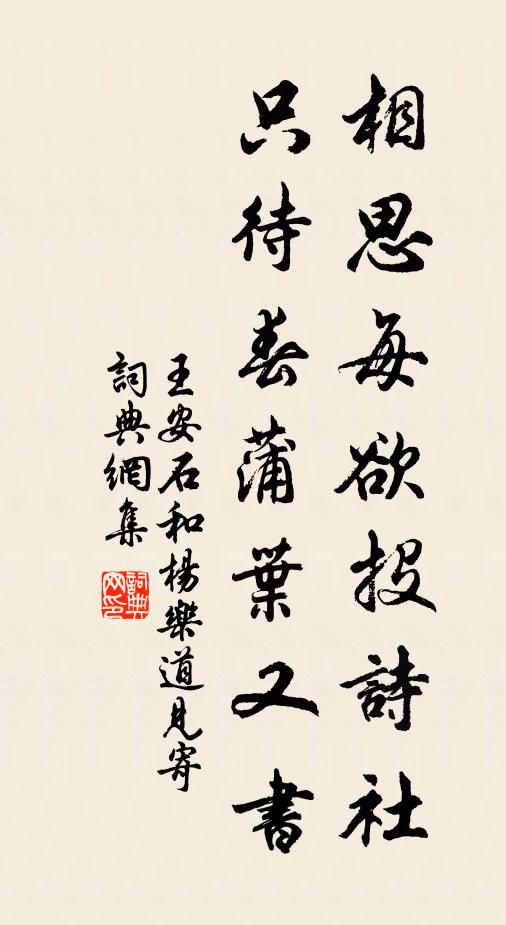 相思每欲投詩社
只待春蒲葉又書
王安石和楊樂道見寄
詞典網集
詞典網印